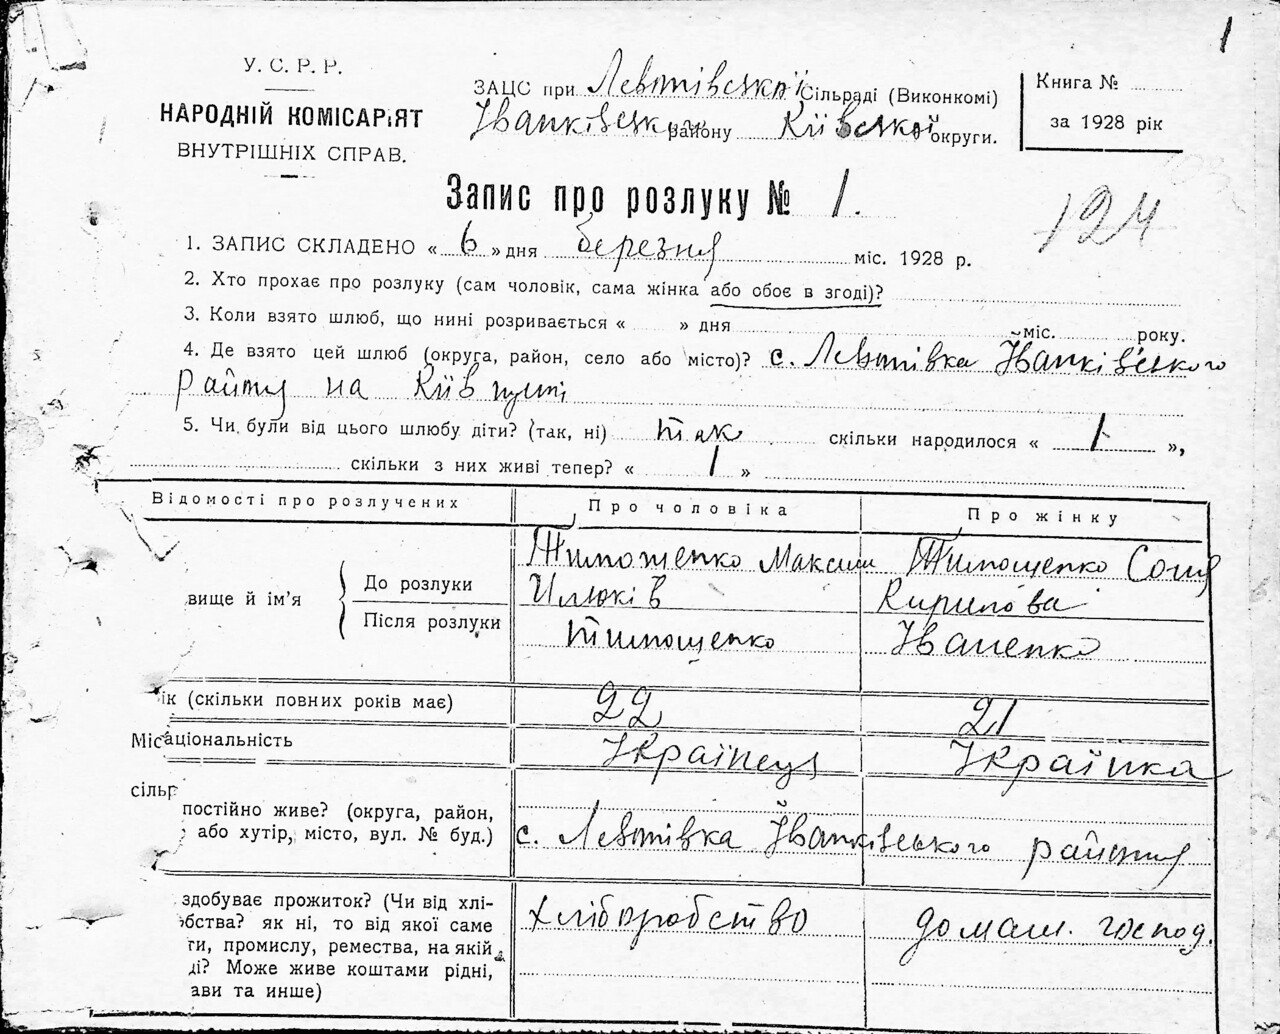 1
У. С. Р. Р.
НАРОДНІЙ КОМІСАРІЯТ
ВНУТРІШНІХ СПРАВ.
ЗАЦС при Сільраді (Виконкомі)
Іванківського району Київської округи.
Книга №
за 1928 рік
Запис про розлуку № 1.
124
1. ЗАПИС СКЛАДЕНО « 6 » дня березня міс. 1928 р.
2. Хто прохає про розлуку (сам чоловік, сама жінка або обоє в згоді)?
3. Коли взято шлюб, що нині розривається « » дня міс. року.
4. Де взято цей шлюб (округа, район, село або місто)? с. Іванківського
району на Київщині
5. Чи були від цього шлюбу діти? (так, ні) так скільки народилося « 1 »,
скільки з них живі тепер? « 1 »
Відомості про розлучених
Про чоловіка
Про жінку
вище й ім'я
До розлуки
Після розлуки
Тимощенко Максим
Тимощенко Соня
Кирилова
Тимощенко
Іваненко
ік (скільки повних років має)
22
21
Міс
аціональність
Українець
Українка
сільр
постійно живе? (округа, район,
або хутір, місто, вул. № буд.)
с. Іванківського району
здобуває прожиток? (Чи від хлі-
обства? як ні, то від якої саме
ти, промислу, ремества, на якій
ді? Може живе коштами рідні,
ави та инше)
хліборобство
домаш. господ.